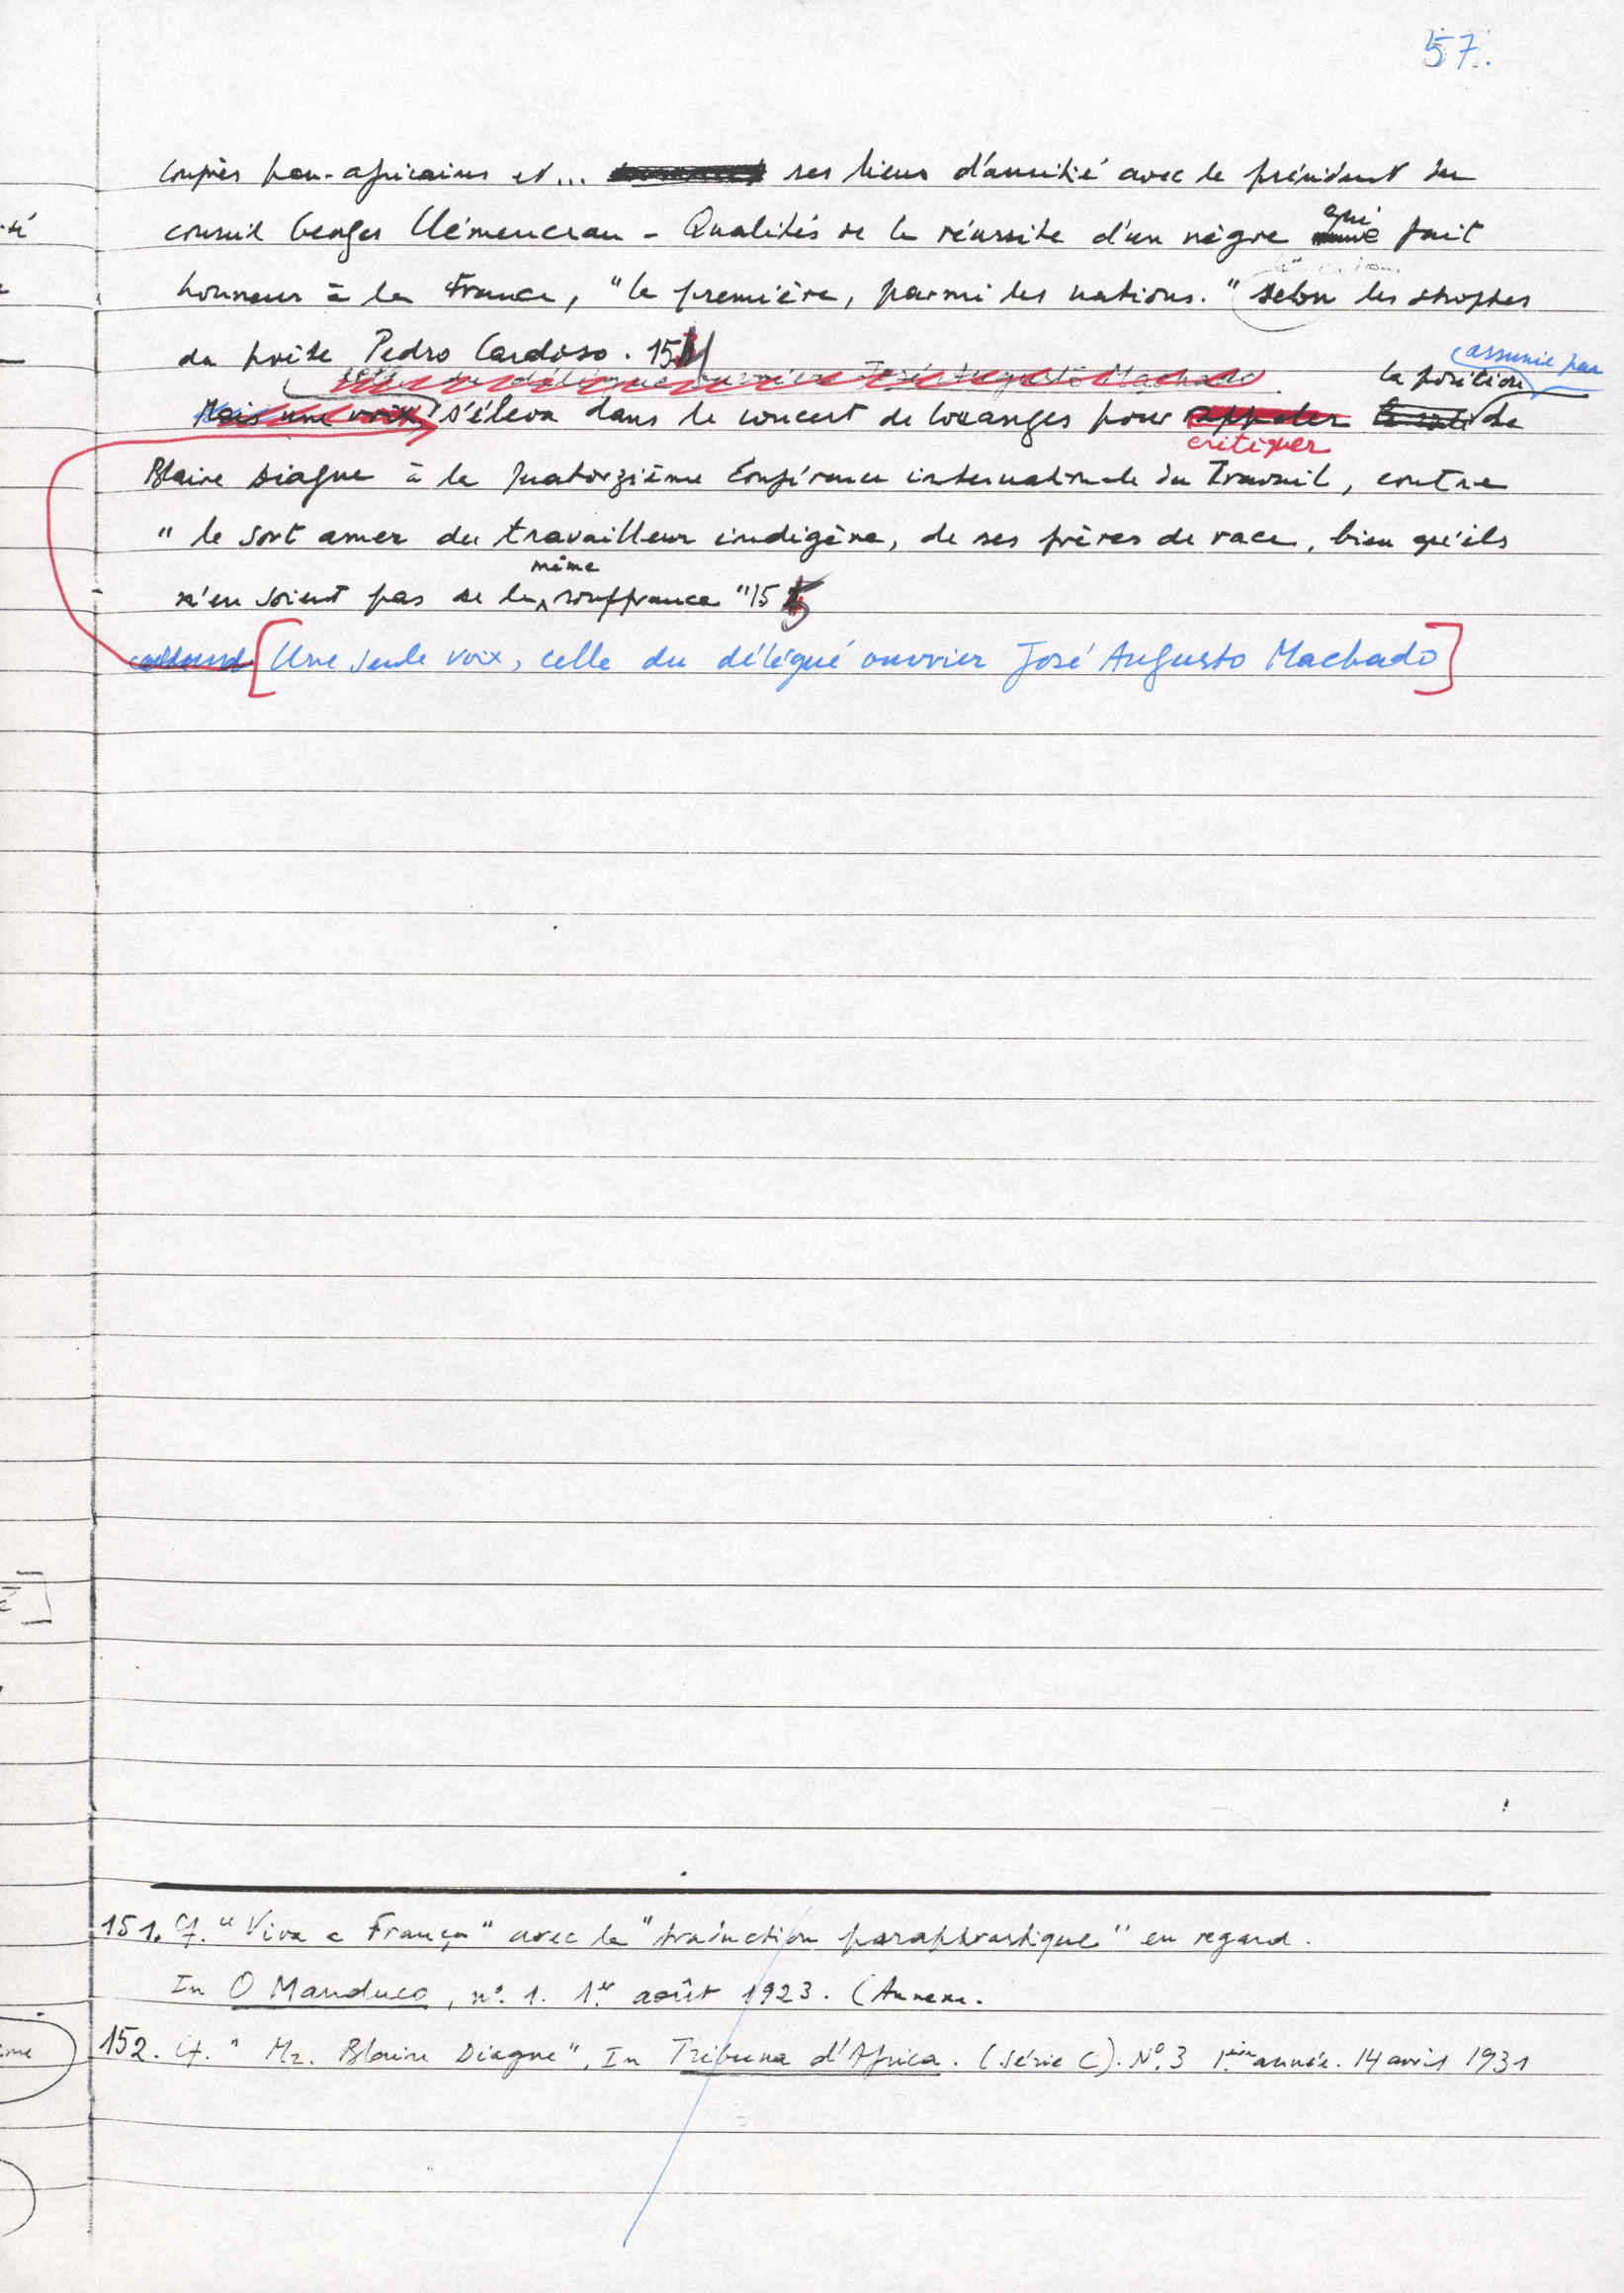 57.
Congrès pan-africains et... ses liens d'amitié avec le président du
conseil Georges Clémenceau - Qualités de la réussite d'un nègre qui fait
honneur à la France, "la première, parmi les nations." selon les strophes
du poète Pedro Cardoso. 15
celle du délégué ouvrier José Augusto Machado
la position assumée par
Mais une voix s'éleva dans le concert de louanges pour appeler de
critiquer
Blaise Diagne à la Quatorzième Conférence internationale du Travail, contre
" le sort amer du travailleur indigène, de ses frères de race, bien qu'ils
même
n'en soient pas de la souffrance "15
[Une seule voix, celle du délégué ouvrier José Augusto Machado]
151. Cf. "Viva a França" avec la "traduction paraphrastique" en regard.
In O Manduco, nº. 1. 1er août 1923. (Annexe.
152. Cf. " Mr. Blaise Diagne", In Tribuna d'Africa. (Série C). Nº.3 1ère année. 14 avril 1931